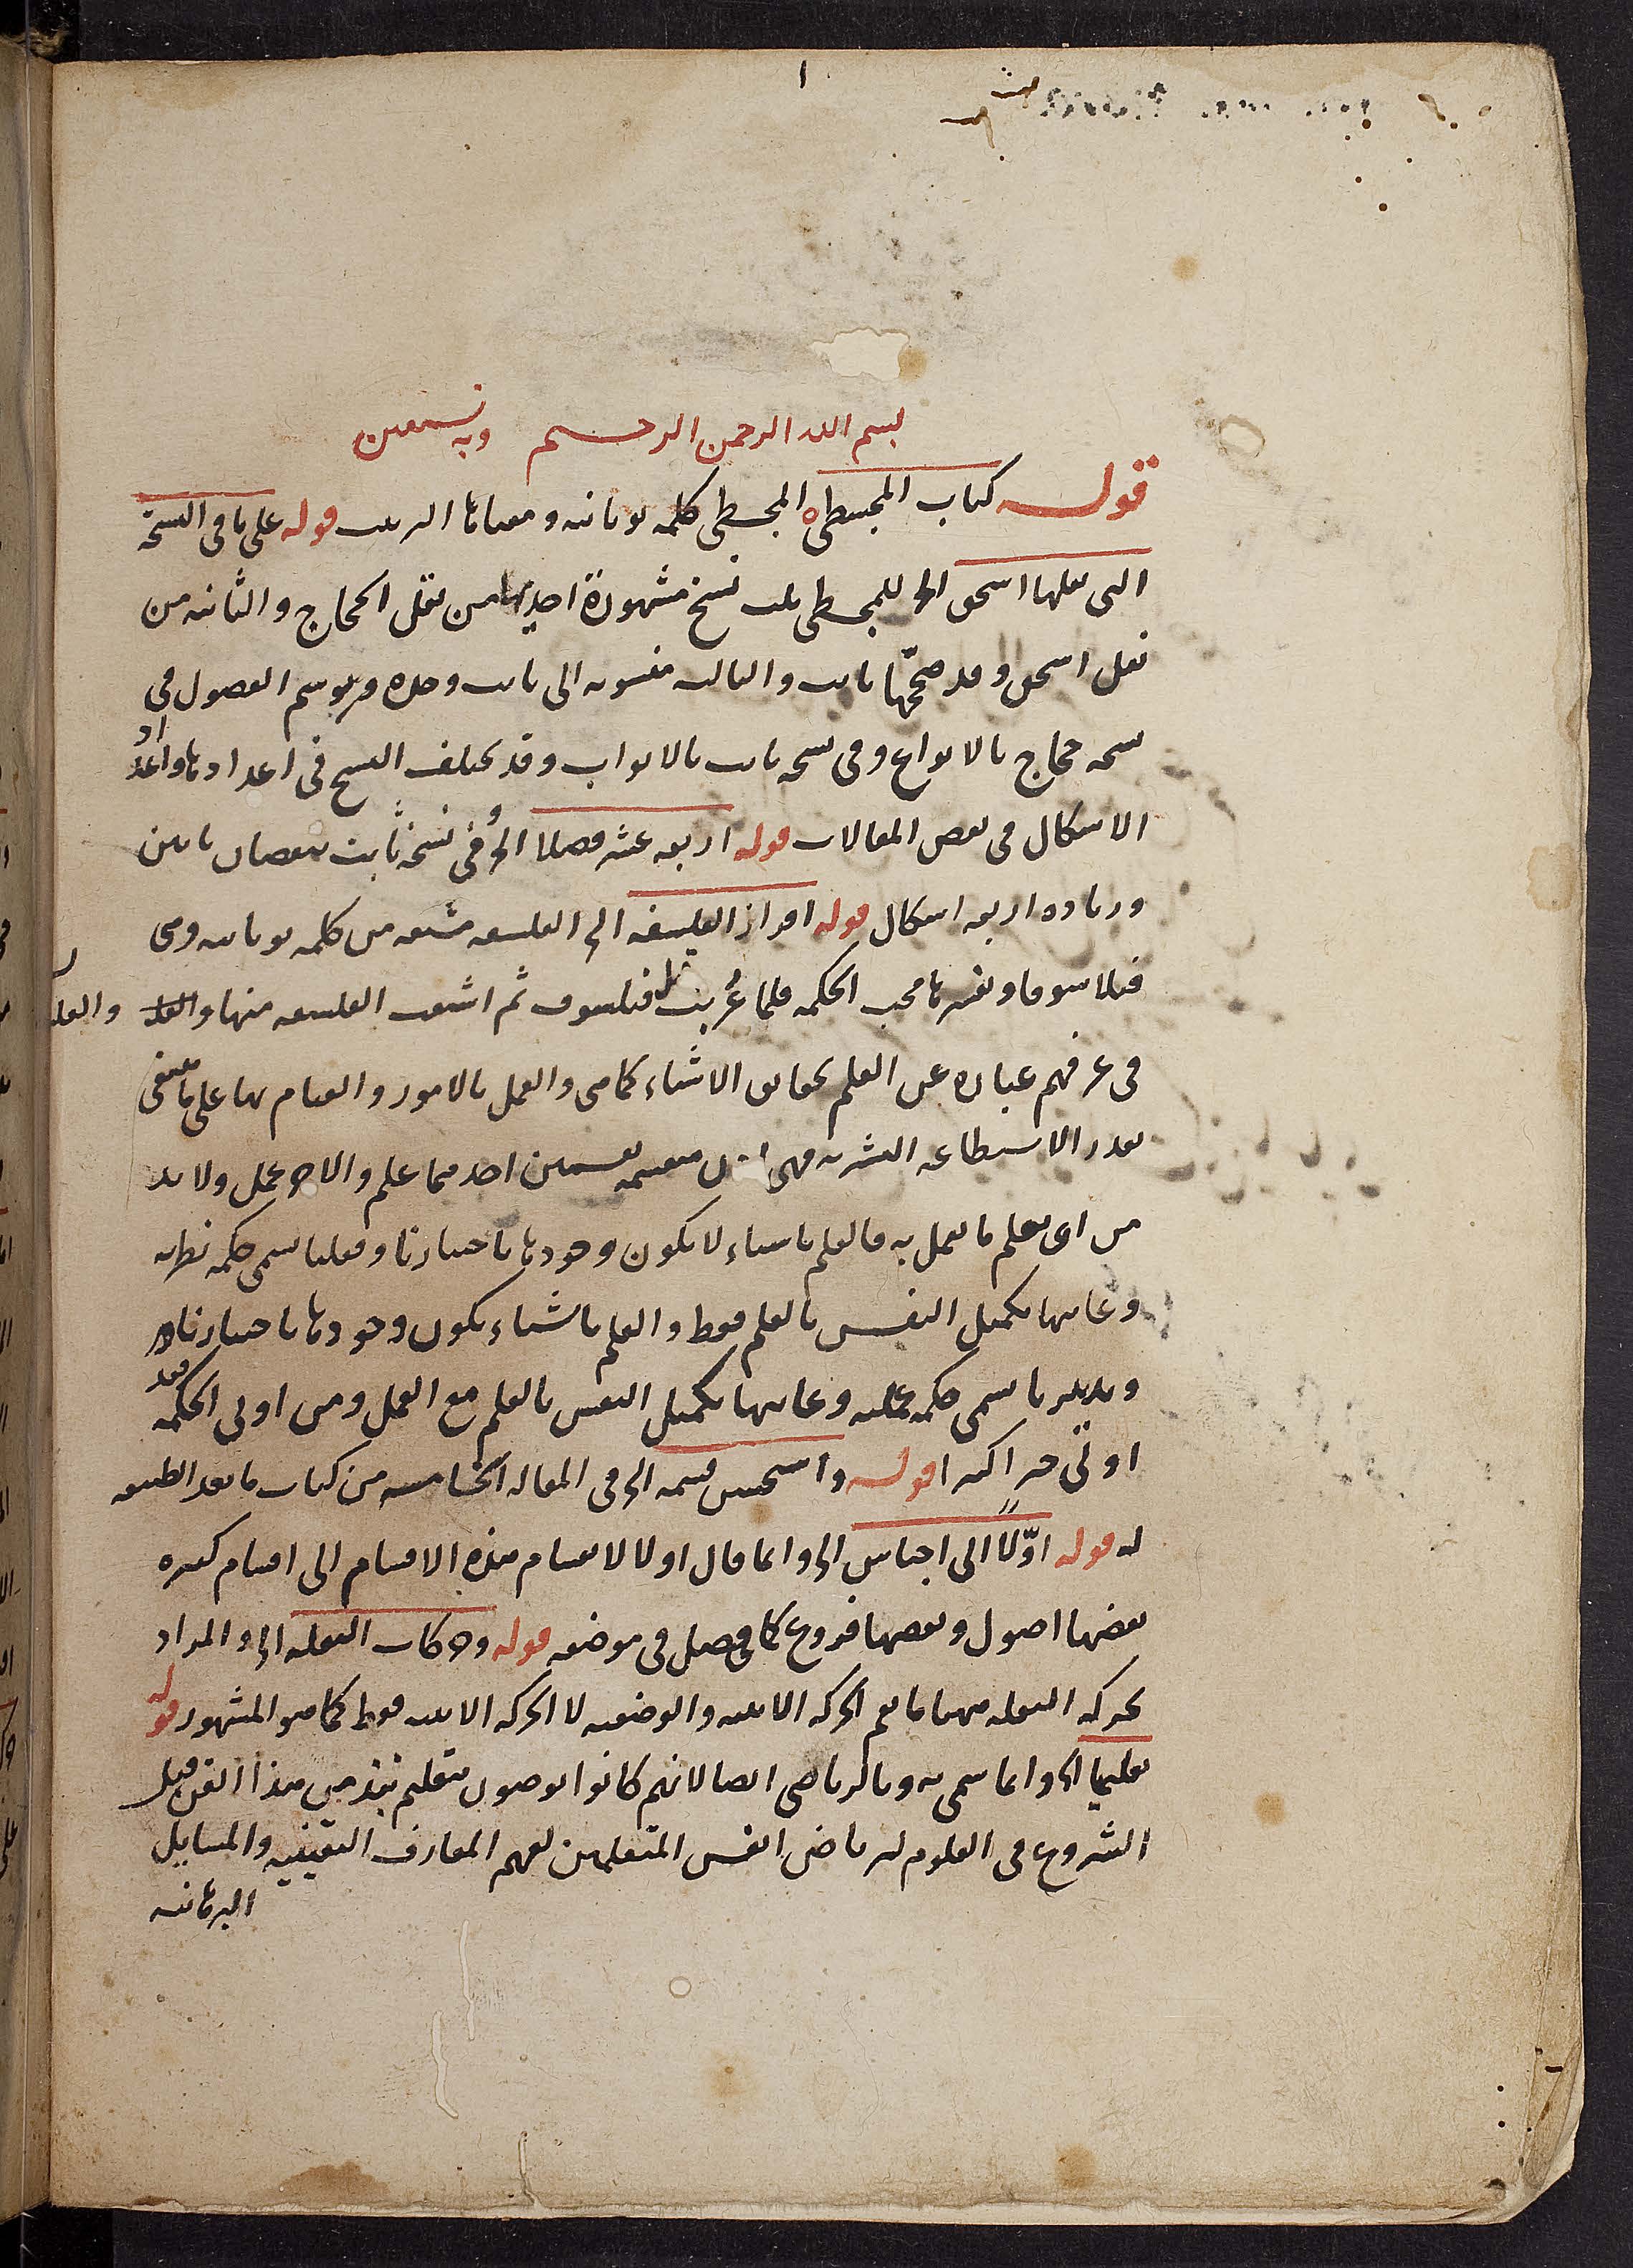 ١
بسم الله الرحمن الرحيم وبه نستعين
قوله كتاب المجسطي ه المجسطي كلمة يونانية ومعناها الترتيب قوله على ما في النسخة
التي نقلها اسحق الخ للمجسطي ثلث نسخ مشهورة احديها من نقل الحجاج والثانية من
نقل اسحق وقد صححها ثابت والثالث منسوبة الى ثابت وحده وتوسم الفصول في
نسخة حجاج بالانواع وفي نسخة ثابت بالابواب وقد يختلف النسخ في اعدادها واعداد
الاشكال في بعض المقالات قوله اربعة عشر فصلا الخ وفي نسخة ثابت بنقصان بابين
وزيادة اربعة اشكال قوله افراز الفلسفة الخ الفلسفة مشتقة من كلمة يونانية وهي
فيلاسوفا وتفسيرها محب الحكمة فلما عُربت قيل فيلسوف ثم اشتقت الفلسفة منها والفلسفة
في عرفهم عبارة عن العلم بحقائق الاشياء كما هي والعمل بالامور والقيام بها على ما ينبغي
بقدر الاستطاعة البشرية فهي منقسمة بقسمين احدهما علم والاخر عمل ولا بد
من ان يعلم ما يعمل به فالعلم باشياء لا يكون وجودها باختيارنا وفعلنا يسمى حكمة نظرية
وغايتها تكميل النفس بالعلم فقط والعلم باشياء يكون وجودها باختيارنا
وتدبيرنا يسمى حكمة عملية وغايتها تكميل النفس بالعلم مع العمل ومن اوتي الحكمة فقد
اوتي خيرا كثيرا قوله واستحسن قسمة الخ في المقالة الخامسة من كتاب ما بعد الطبيعة
له قوله اوّلاً الى اجناس الخ وانما قال اولا لانقسام هذه الاقسام الى اقسام كثيرة
بعضها اصول وبعضها فروع كما فصل في موضعه قوله وحركات النقلة الخ والمراد
بحركة النقلة ههنا ما يعم الحركة الاينية والوضعية لا الحركة الاينية فقط كما هو المشهور قوله
تعليميا الخ وانما سمي به وبالرياضي ايضا لانهم كانوا يوصون بتعليم نبذ من هذا الفن قبل
الشروع في العلوم ليرتاض انفس المتعلمين لفهم المعارف اليقينية والمسايل
البرهانية